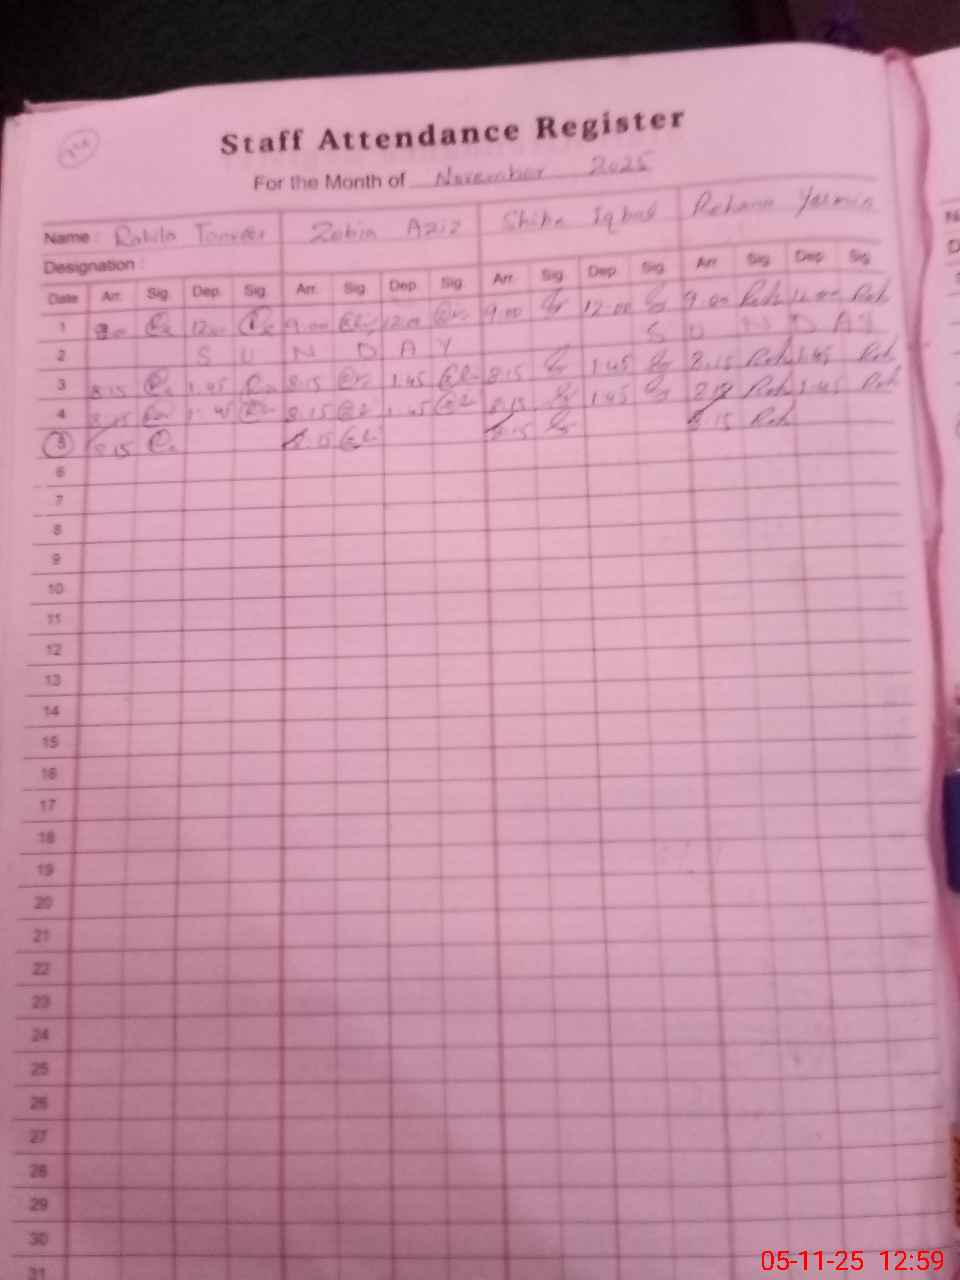 Staff Attendance Register
For the Month of November 2025
Name : Tanveer Zobia Aziz Shiba Iqbal Rehana Yasmin
Designation :
Date Arr. Sig. Dep. Sig. Arr. Sig. Dep. Sig. Arr. Sig. Dep. Sig. Arr. Sig. Dep. Sig.
1 9.00 12.00 9.00 12.00 9.00 12.00 9.00 Reh 12.00 Reh
2 S U N D A Y S U N D A Y
3 8.15 1.45 8.15 1.45 8.15 1.45 8.15 Reh 1.45 Reh
4 8.15 1.45 8.15 1.45 8.15 1.45 Reh 1.45 Reh
5 8.15 8.15 8.15 8.15 Reh
6
7
8
9
10
11
12
13
14
15
16
17
18
19
20
21
22
23
24
25
26
27
28
29
30
31
05-11-25 12:59